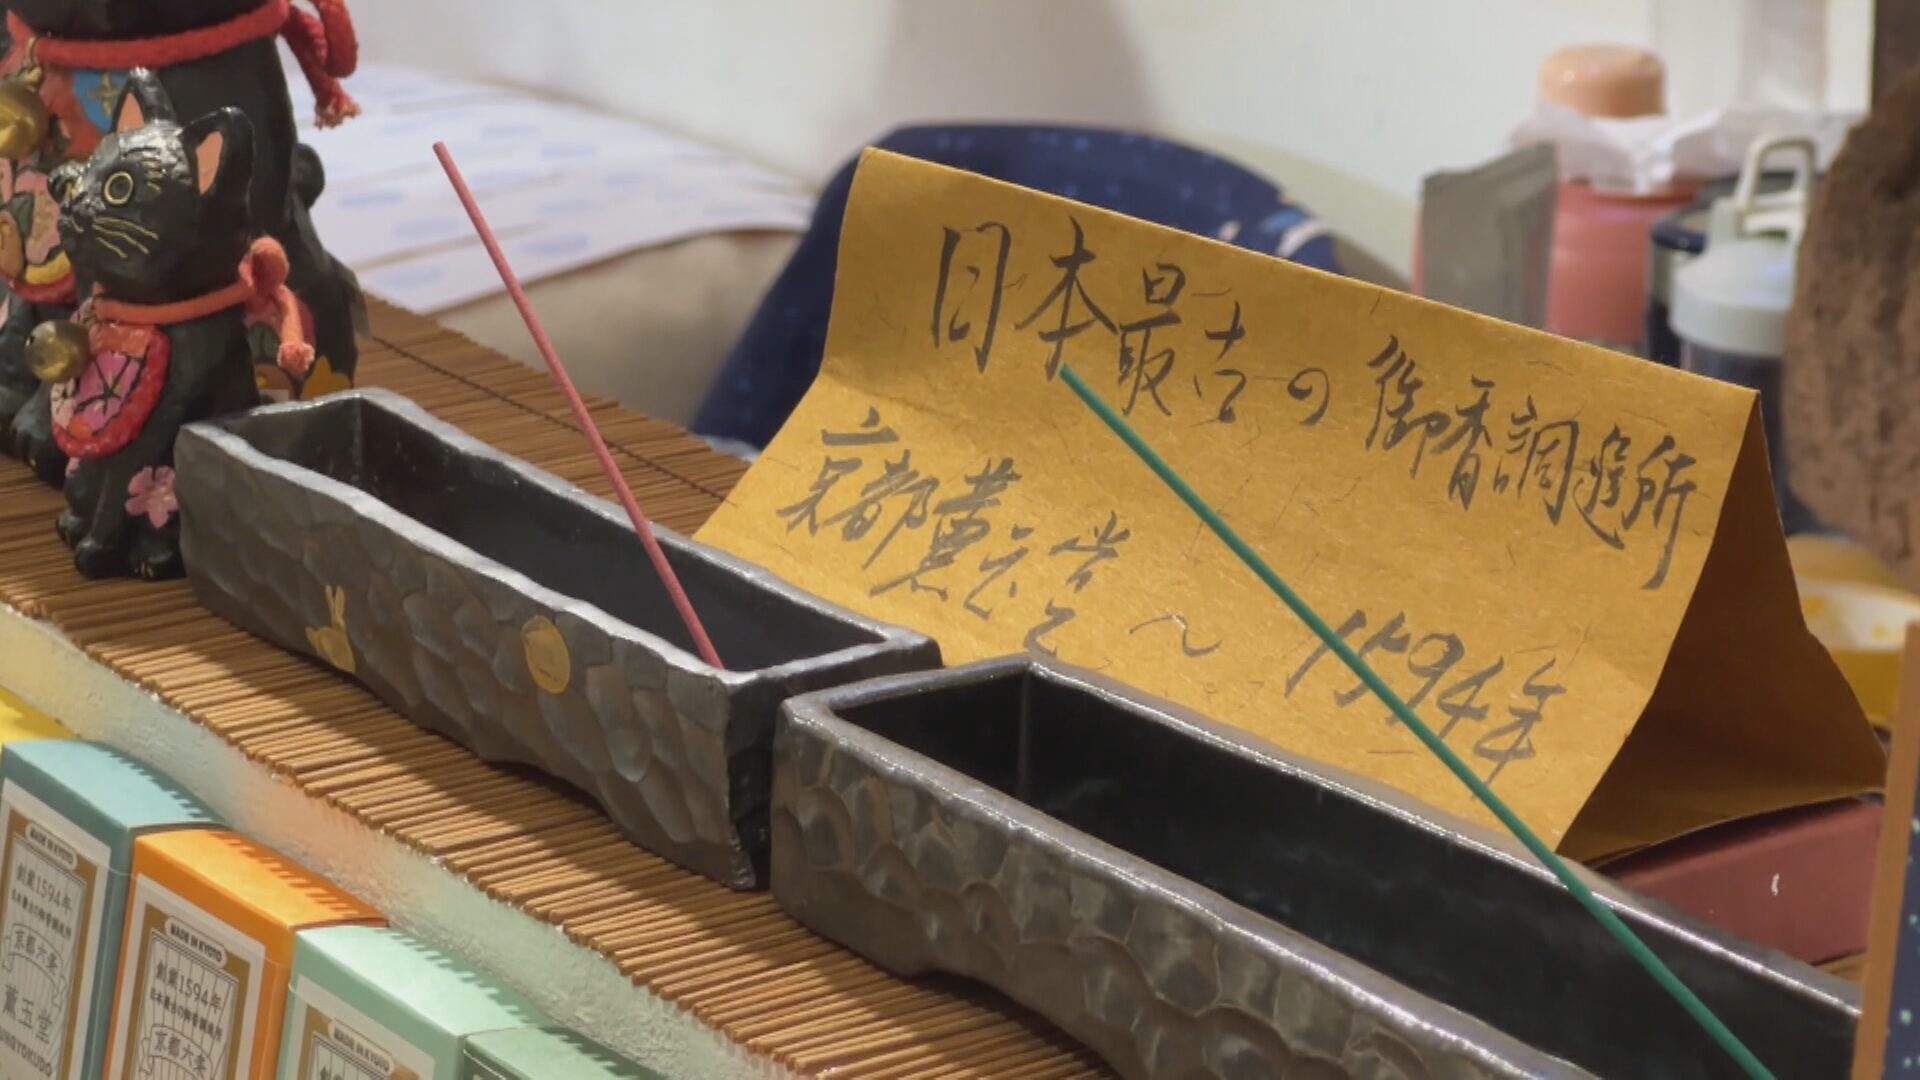 日本最古の御香調進所
京都薫玉堂 ～ 1594年
MADE IN KYOTO
創業1594年
日本最古の御香調進所
京都六条
薫玉堂
KUNGYOKUDO
MADE IN KYOTO
創業1594年
日本最古の御香調進所
京都六条
MADE IN KYOTO